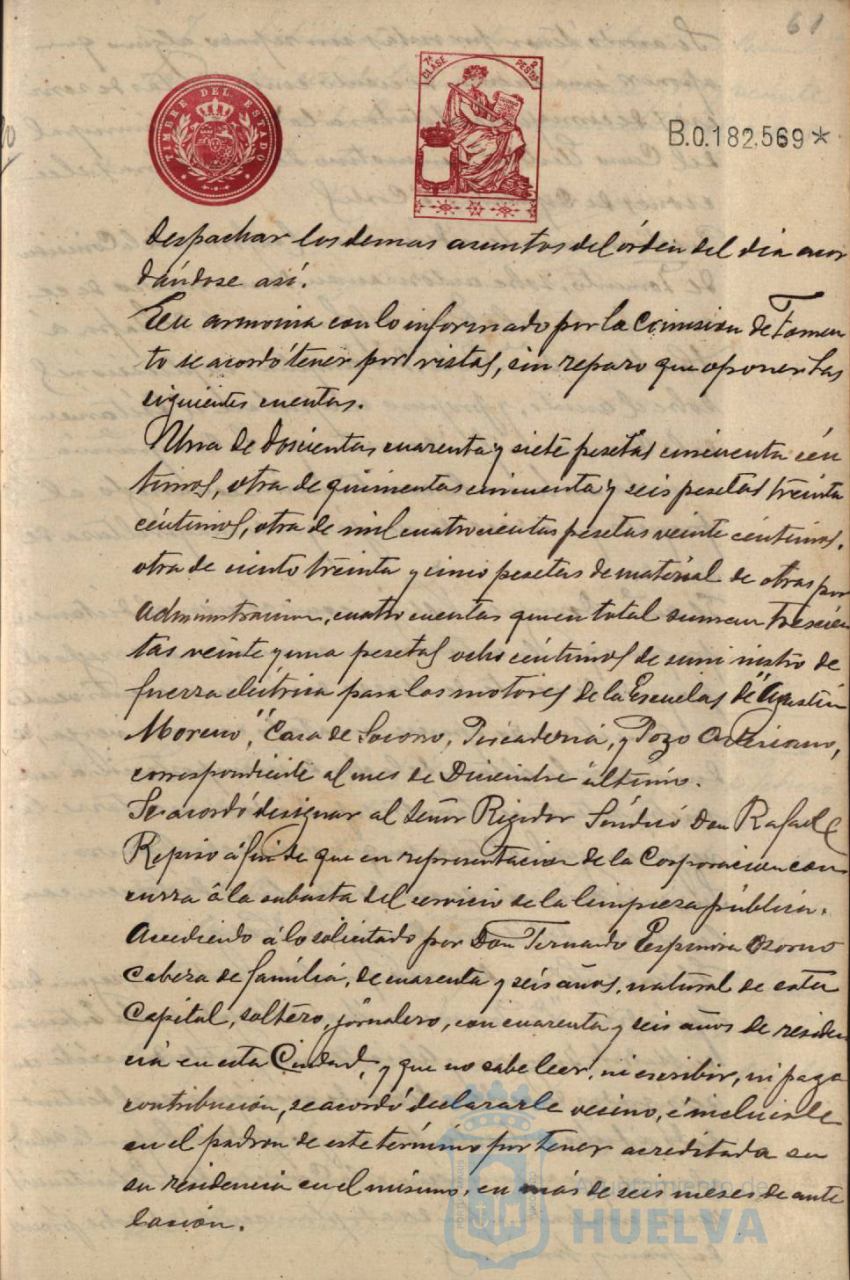 61
TIMBRE DEL ESTADO
7ª CLASE
2 PESTAS
B.0.182,569*
despachar los demas asuntos del órden del dia acor
dándose así.
En armonia con lo informado por la Comision de Fomen
to se acordó tener por vistas, sin reparo que oponer las
siguientes cuentas.
Una de doscientas cuarenta y siete pesetas cincuenta cén
timos, otra de quinientas cincuenta y seis pesetas treinta
céntimos, otra de mil cuatrocientas pesetas veinte céntimos,
otra de ciento treinta y cinco pesetas de material de obras por
Administracion, cuatro cuentas que en total suman trescien
tas veinte y una pesetas ocho céntimos de suministro de
fuerza eléctrica para los motores de la Escuelas de "Agustín
Moreno", Casa de Socorro, Pescadería, y Pozo Artesiano,
correspondiente al mes de Diciembre último.
Se acordó designar al Señor Regidor Síndico Don Rafael
Repiso á fin de que en representacion de la Corporacion con
curra á la subasta del servicio de la limpieza pública.
Accediendo á lo solicitado por Don Fernando Espinosa Osorno
Cabeza de família, de cuarenta y seis años, natural de esta
Capital, soltero, jornalero, con cuarenta y seis años de residen
cia en esta Ciudad, y que no sabe leer, ni escribir, ni paga
contribución, se acordó declararle vecino, é incluirle
en el padron de este término por tener acreditada en
su residencia en el mismo, en más de seis meses de ante
lación.
Ayuntamiento de
HUELVA